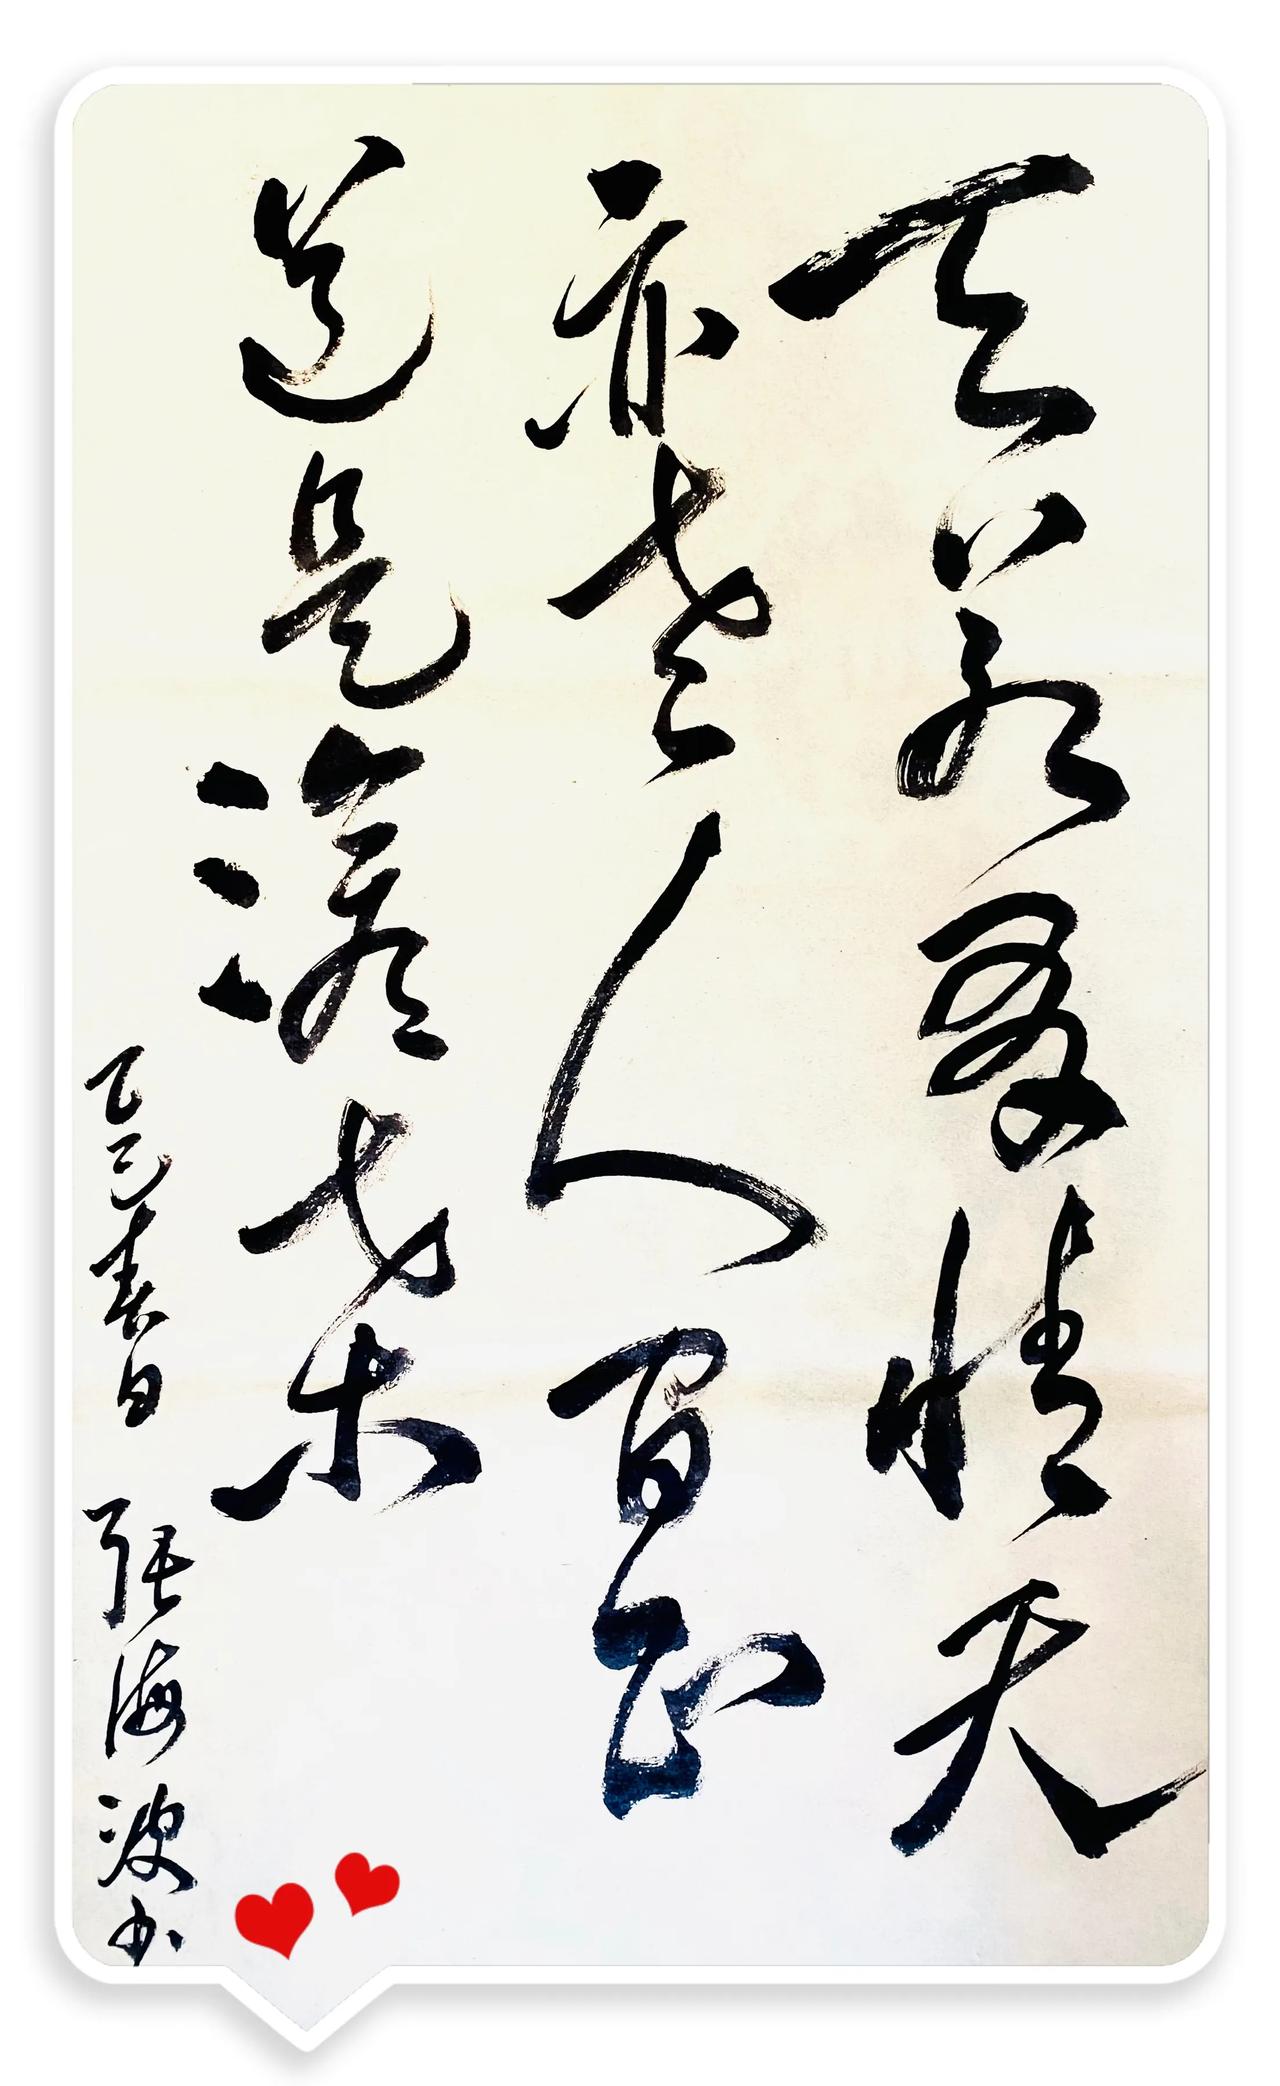 天若有情天
亦老人間正
道是滄桑
乙巳春日 張海波书